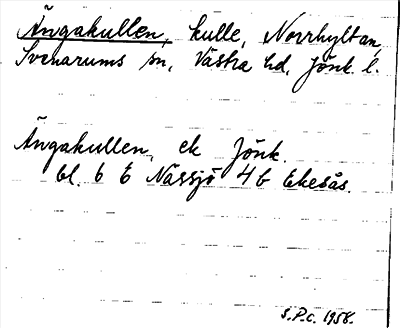 Ängakullen, kulle, Norrhyltan,
Svenarums sn, Västra hd, Jönk. l.
Ängakullen, ek Jönk.
bl. 6 E Nässjö 4b Ekesås.
S.P.C. 1958.